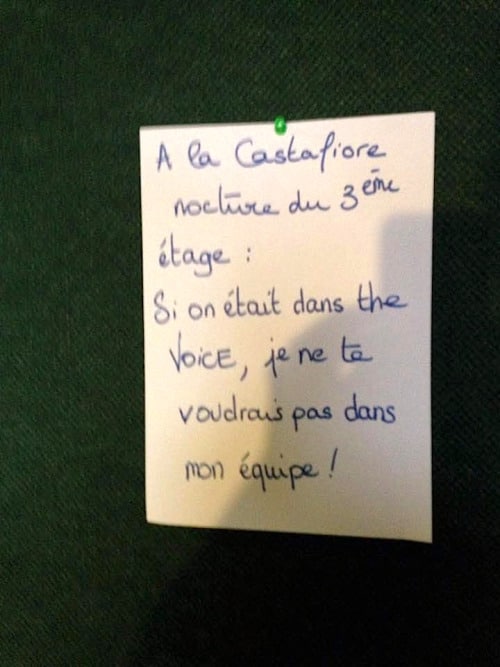 A la Castafiore
noctüre du 3ème
étage :
Si on était dans the
VoicE, je ne te
voudrais pas dans
mon équipe !